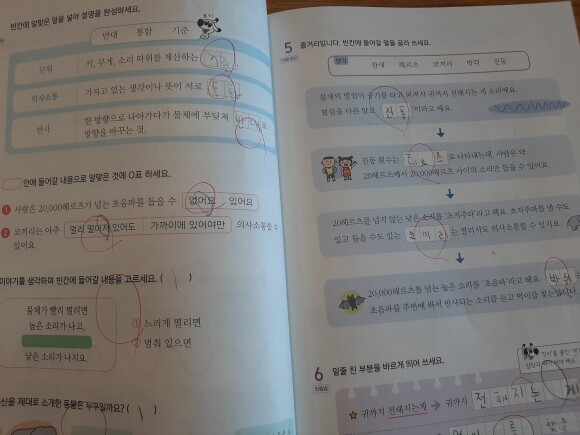 빈칸에 알맞은 말을 넣어 설명을 완성하세요.
반대 통합 기준
단위
키, 무게, 소리 따위를 계산하는 기준
의사소통
가지고 있는 생각이나 뜻이 서로 통함.
반사
한 방향으로 나아가다가 물체에 부딪쳐
방향을 바꾸는 것.
안에 들어갈 내용으로 알맞은 것에 O표 하세요.
1 사람은 20,000헤르츠가 넘는 초음파를 들을 수 없어요 있어요
2 코끼리는 아주 멀리 떨어져 있어도 가까이에 있어야만 의사소통할 수
있어요.
이야기를 생각하며 빈칸에 들어갈 내용을 고르세요. ( 1 )
물체가 빨리 떨리면
높은 소리가 나고,
낮은 소리가 나지요.
① 느리게 떨리면
② 멈춰 있으면
신을 제대로 소개한 동물은 누구일까요? ( 1 )
5 줄거리입니다. 빈칸에 들어갈 말을 골라 쓰세요.
헤르츠 코끼리 박쥐 진동
물체의 떨림이 공기를 타고 퍼져서 귀까지 전해지는 게 소리예요.
떨림을 다른 말로 진동 이라고 해요.
진동 횟수는 헤르츠 로 나타내는데, 사람은 약
20헤르츠에서 20,000헤르츠 사이의 소리만 들을 수 있어요.
20헤르츠를 넘지 않는 낮은 소리를 '초저주파'라고 해요. 초저주파를 낼 수도
있고 들을 수도 있는 코끼리 는 멀리서도 의사소통할 수 있지요.
20,000헤르츠를 넘는 높은 소리를 '초음파'라고 해요. 박쥐
초음파를 주변에 쏴서 반사되는 소리를 듣고 먹이를 찾는답니다.
6 밑줄 친 부분을 바르게 띄어 쓰세요.
귀까지 전해지는게 → 귀까지 전해지는 게